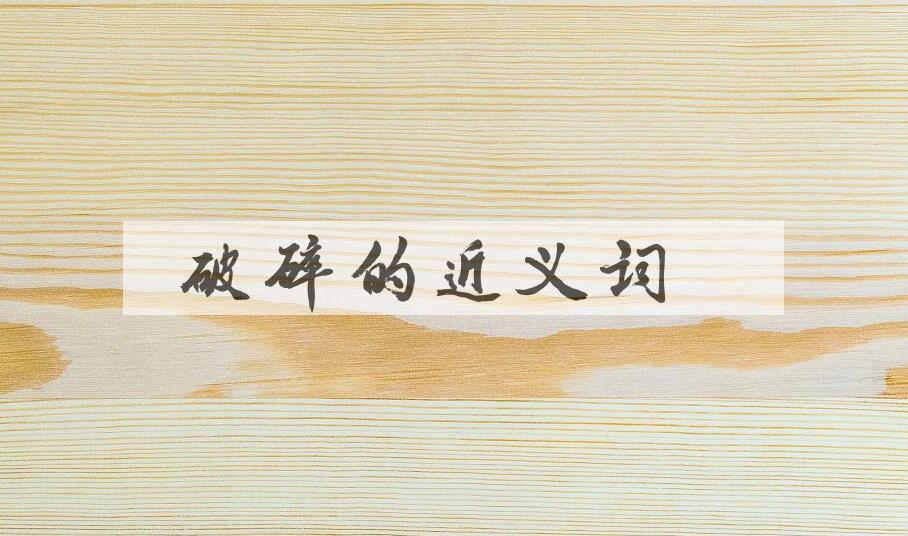 破碎的近义词